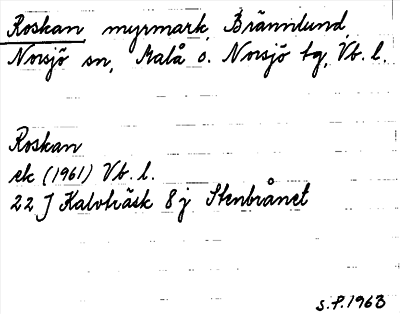 Roskan, myrmark, Brännlund,
Norsjö sn, Malå o. Norsjö tg, Vb. l.
Roskan
ek (1961) Vb. l.
22 J Kalvträsk 8 j Stenbrånet
S.P. 1963